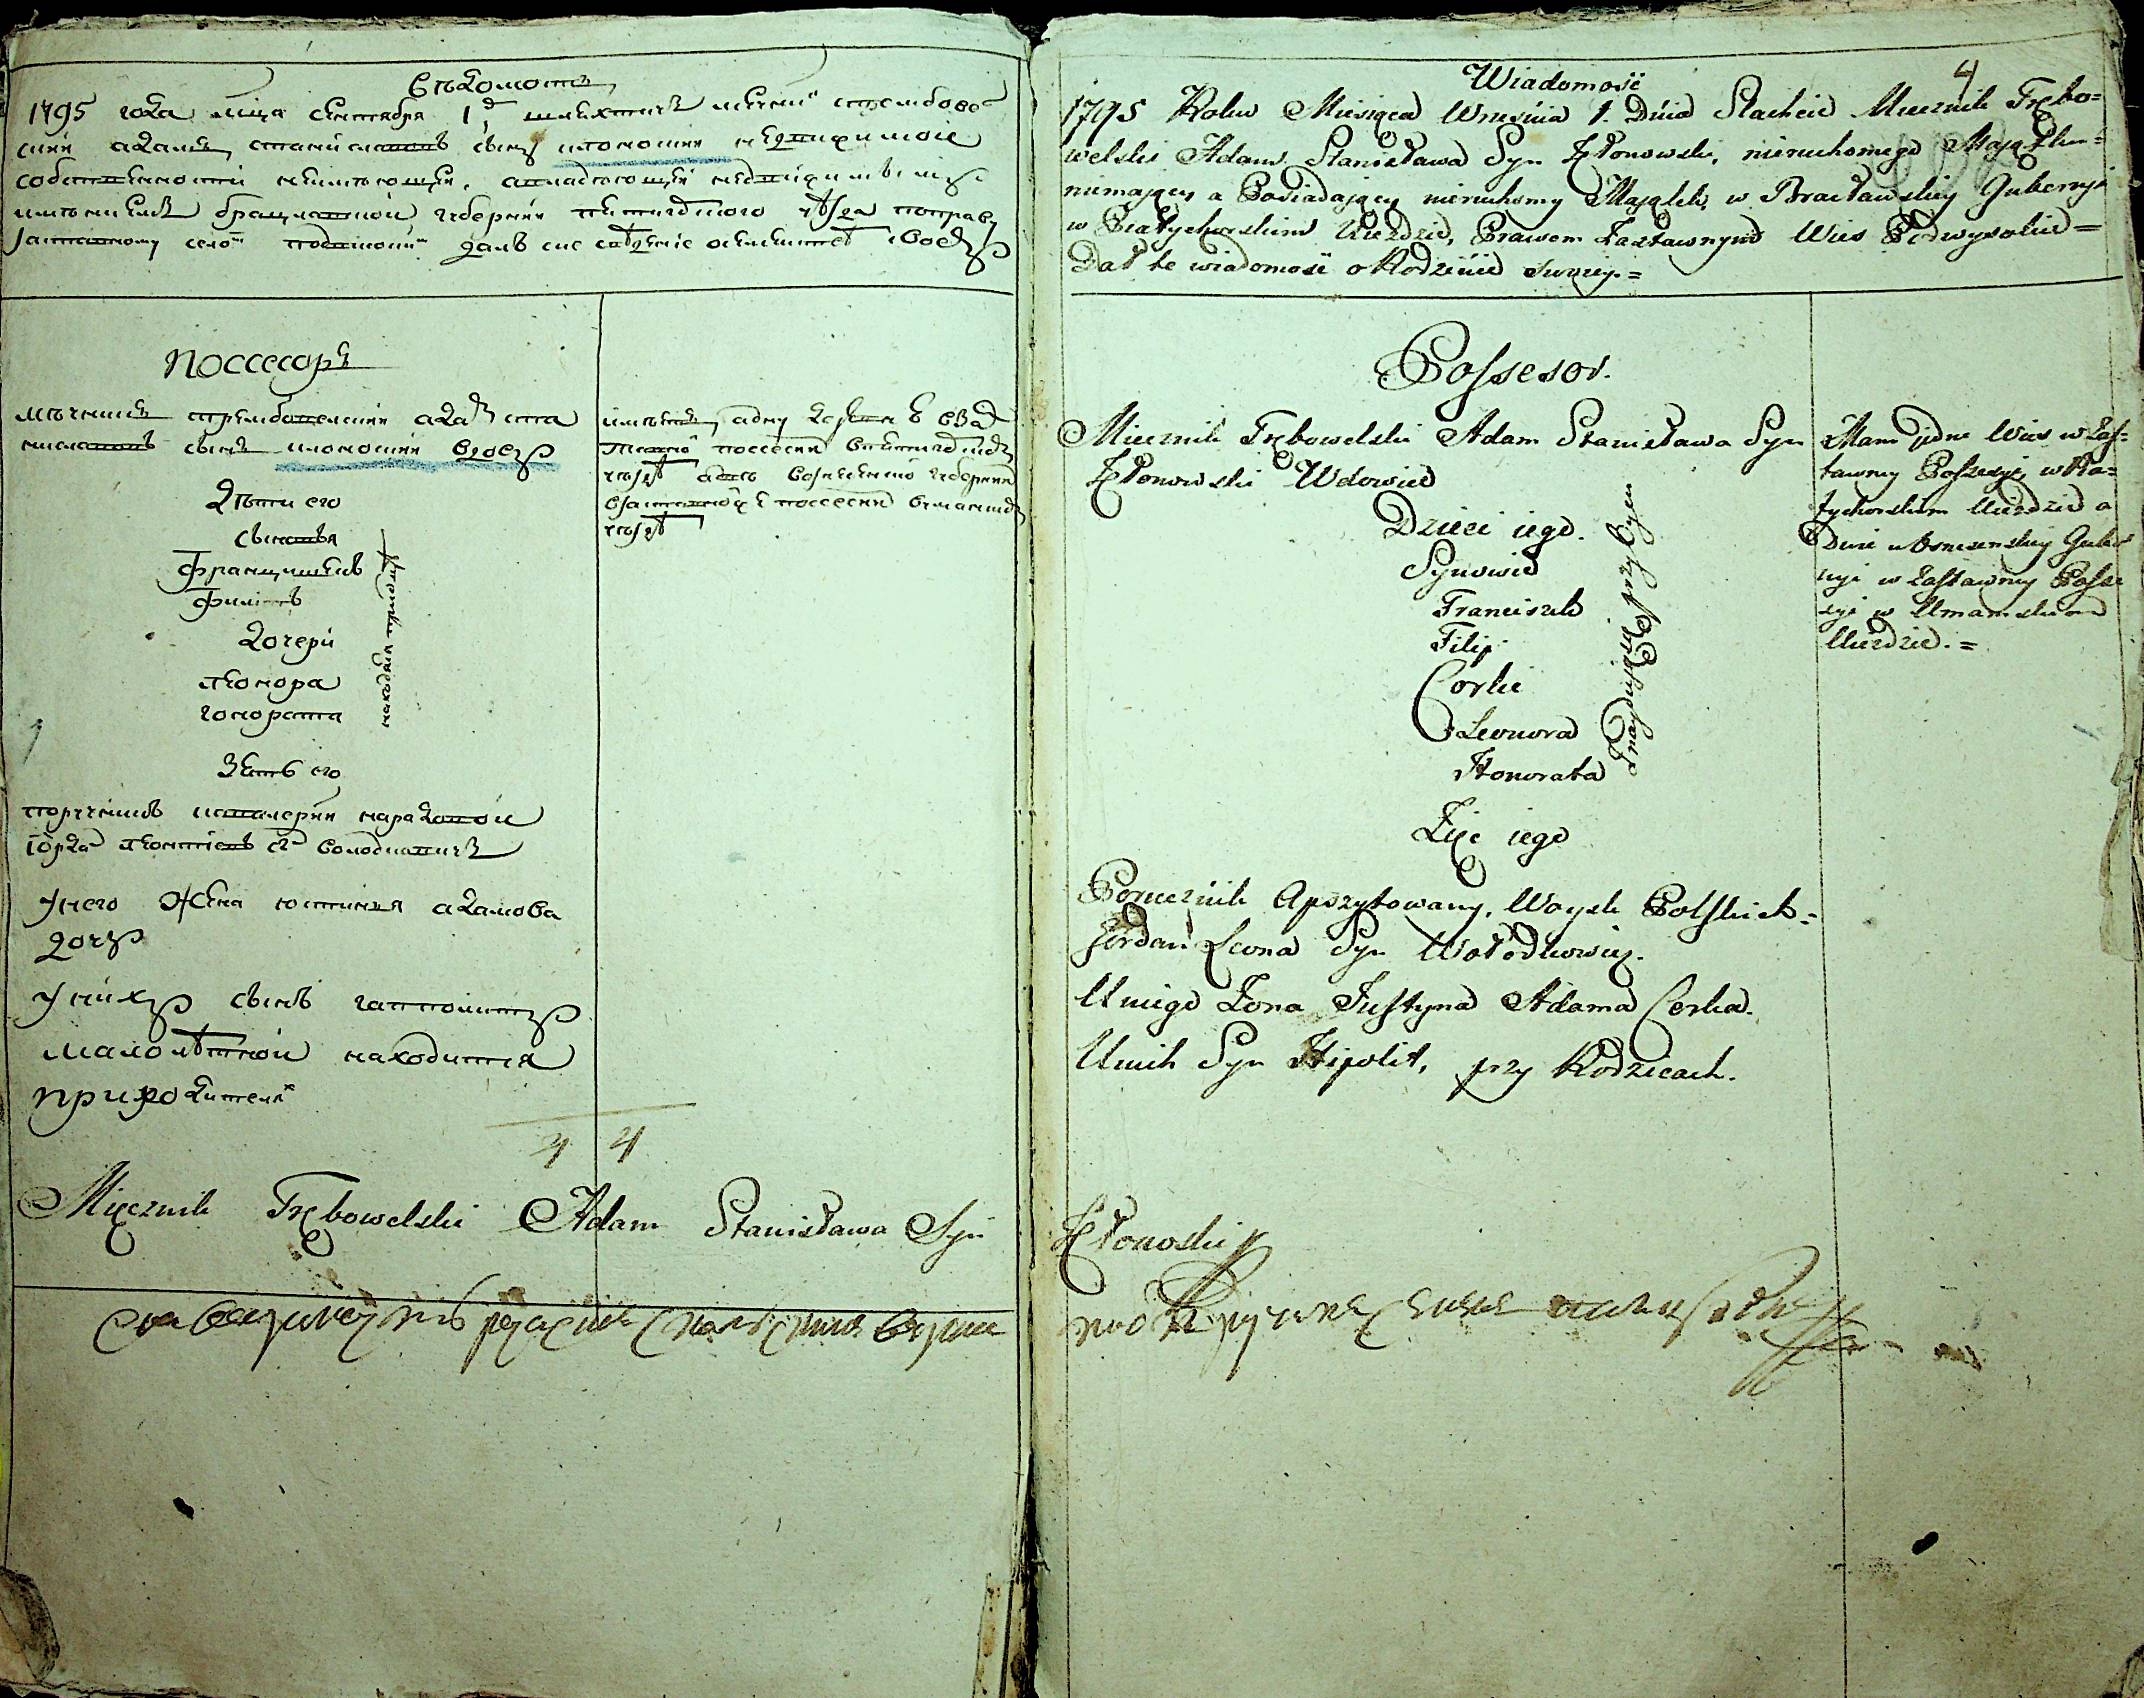 Вѣдомость
1795 года мѣца сентября 1 д шляхтичь мечни стрембовел
ский адамъ станиславовъ сынъ клоновский недвижимой
собственности неимеющей, авладеющей недвижимымъ
имениемъ брацлавской губернии пятигорского уѣзда поправу
заставному село подвисокий далъ сие сведение осемействе своемъ
Поссесоръ
мечникъ стрембовелский адамъ ста
ниславовъ сынъ клоновский вдовецъ
Дѣти его
сыновья
францишекъ
филипъ
дочери
леонора
гонората
находятся приотцѣ
Зять его
поручикъ кавалерии народовой
іорда леонтиевъ с володкавичь
Унего жена юстиния адамова
дочь
Унихъ сынъ гапполитъ
малолѣтной находится
при родителях
имѣетъ одну деревню в
ставной поссесии впятигорском
уѣздѣ а две возвесенской губернии
взаставной поссесии вуманском
уѣздѣ
4 4
Mięcznik Trębowelski Adam Stanisława Syn
Kłonoski
4
Wiadomość
1795 Roku Miesiąca Wrzesnia 1. Dnia Slachcic Miecznik Trębo=
welski Adam Stanisława Syn Kłonowski, nieruchomego Maiątku=
niemaiący, a Posiadaiący nieruchomy Maiątek, w Bracławskiey Gubernyi
w Piatyhorskim Uiezdzie, Prawem Zastawnym Wies Podwysokie=
Dał te wiadomość o Rodzinie swoiey.=
Possesor.
Miecznik Trębowelski Adam Stanisława Syn
Kłonowski Wdowiec
Dzieci iego.
Synowie
Franciszek
Filip
Corki
Leonora
Honorata
Znayduią się przy Oycu
Zięc iego
Porucznik Aposzytowany, Woysk Polskich=
Jordan Leona Syn Wołodkowicz.
Uniego Zona Justyna Adama Corka.
Unich Syn Hipolit, przy Rodzicach.
Mam iedne Wies w Zas=
tawney Possesyi, w Pia=
tyhorskim Uiezdzie a
Dwie w Woznesenskiey Guber
nyi w Zastawney Posse
syi w Umanskiem
Uiezdzie.=